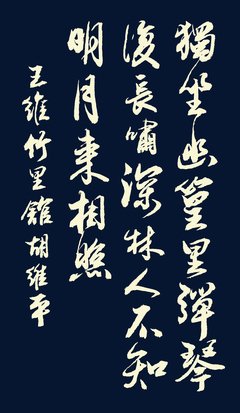 獨坐幽篁里彈琴
復長嘯深林人不知
明月来相照
王維竹里館胡維平